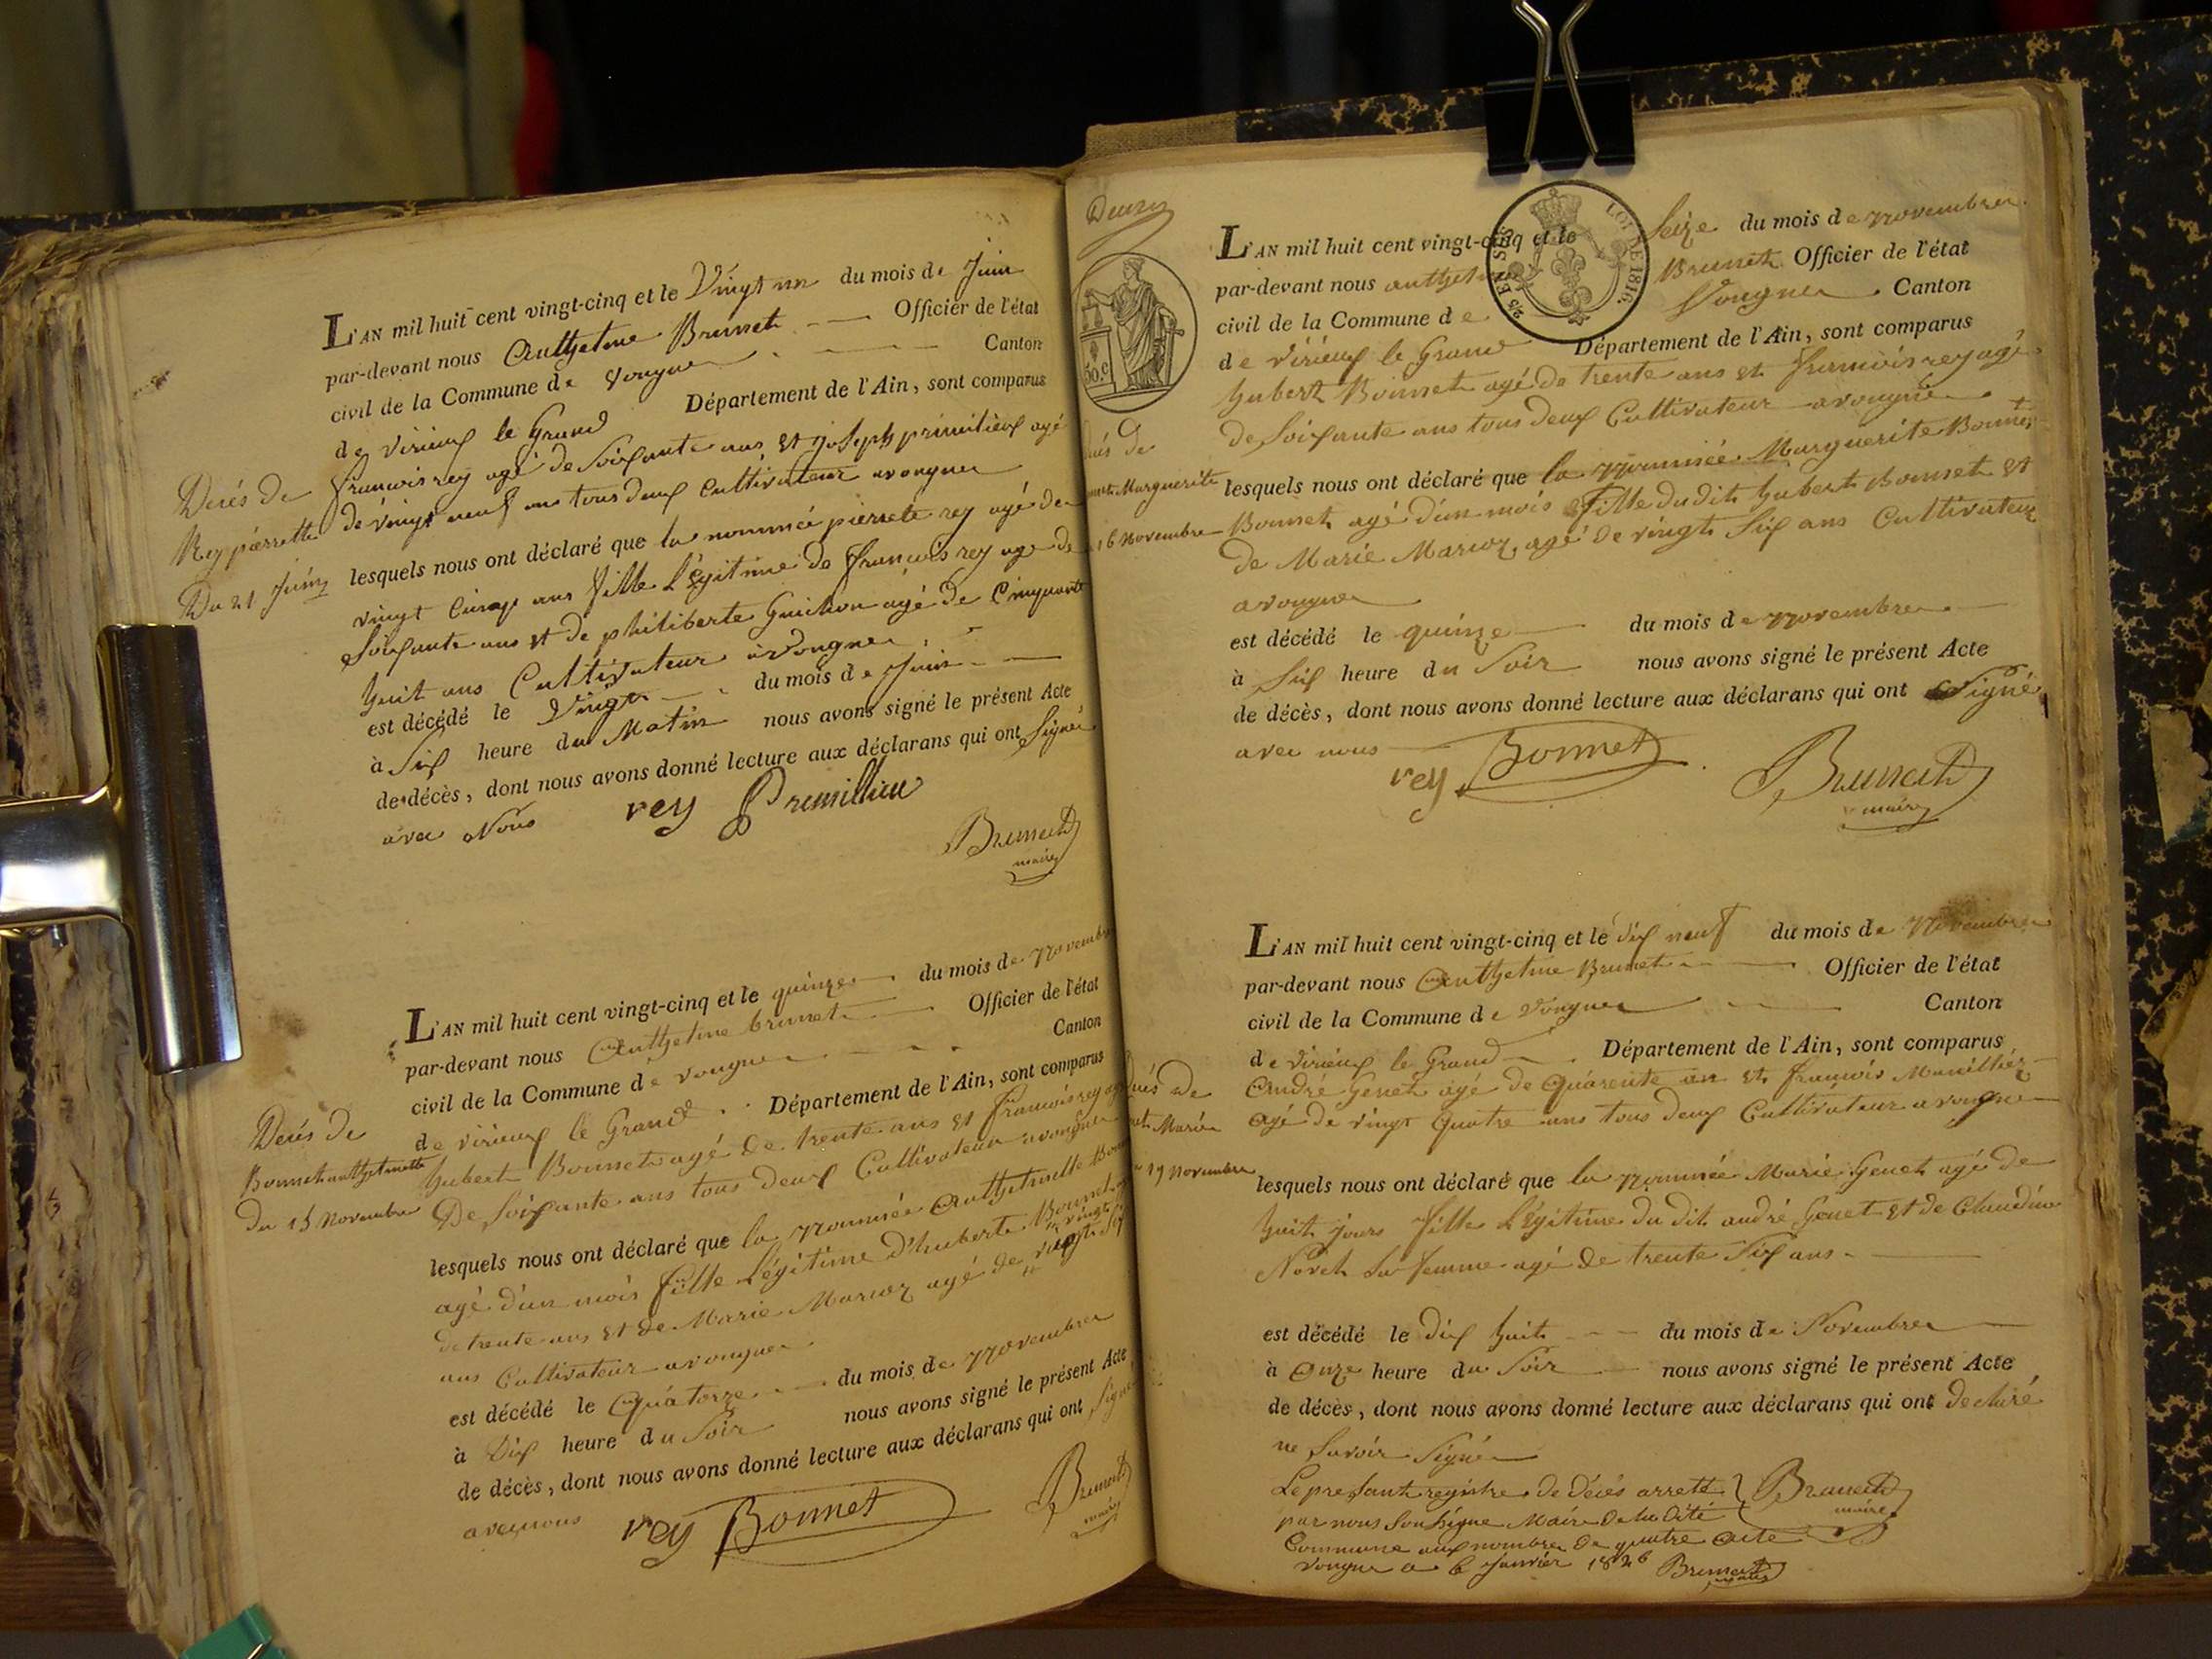 L'AN mil huit cent vingt-cinq et le Vingt un du mois de Juin
par-devant nous Anthetme Brunet Officier de l'état
civil de la Commune de vongne Canton
de virieux le Grand Département de l'Ain, sont comparus
francois rey agé de Soixante ans et joseph primilieux agé
de vingt neuf ans tous deux Cultivateur avongne
Décés de
Rey pierrette
Du 21 Juin
lesquels nous ont déclaré que la nommée pierrete rey agé de
vingt Cinq ans fille Légitime de francois rey age de
Soixante ans et de philiberte Guichon agé de Cinquante
huit ans Cultivateur àvongne
est décédé le Vingt du mois de Juin
à Six heure du Matin nous avons signé le présent Acte
de décès, dont nous avons donné lecture aux déclarans qui ont Signé
avec Nous rey Primillieu
Brunet
maire
L'AN mil huit cent vingt-cinq et le quinze du mois de novembre
par-devant nous Anthetme brunet Officier de l'état
civil de la Commune de vongne Canton
de virieux le Grand Département de l'Ain, sont comparus
hubert Bonnet agé de trente ans et francois rey agé
De Soixante ans tous deux Cultivateur avongne
Décés de
Bonnet anthetmette
Du 15 Novembre
lesquels nous ont déclaré que la nommée Anthetmette
agé d'un mois fille Légitime d'huberte Bonnet
de trente ans et de Marie Marioz agé de vingt six
ans Cultivateur avongne
est décédé le Quatorze du mois de novembre
à Dix heure du Soir nous avons signé le présent Acte
de décès, dont nous avons donné lecture aux déclarans qui ont Signé
avec nous rey Bonnet
Brunet
maire
Décès
50.c
L'AN mil huit cent vingt-cinq et le Seize du mois de novembre
LOI DE 1816.
par-devant nous Brunet Officier de l'état
civil de la Commune de Vongne Canton
de virieux le Grand Département de l'Ain, sont comparus
hubert Bonnet agé de trente ans et francois rey agé
de Soixante ans tous deux Cultivateur avongne
de
Marguerite
16 Novembre
lesquels nous ont déclaré que la nommée Marguerite Bonnet
Bonnet agé d'un mois fille dudit hubert Bonnet et
de Marie Marioz agé de vingt Six ans Cultivateur
avongne
est décédé le quinze du mois de novembre
à Six heure du Soir nous avons signé le présent Acte
de décès, dont nous avons donné lecture aux déclarans qui ont Signé
avec nous
rey Bonnet Brunet
maire
L'AN mil huit cent vingt-cinq et le dix neuf du mois de Novembre
par-devant nous Anthetme Brunet Officier de l'état
civil de la Commune de Vongne Canton
de virieux le Grand Département de l'Ain, sont comparus
André Genet agé de Quarente an et francois
agé de vingt Quatre ans tous deux Cultivateur avongne
de
Marie
19 Novembre
lesquels nous ont déclaré que la nommée Marie Genet agé de
huit jours fille Légitime du dit andré Genet et de Claudine
Sa femme agé de trente Six ans
est décédé le dix huit du mois de Novembre
à Onze heure du Soir nous avons signé le présent Acte
de décès, dont nous avons donné lecture aux déclarans qui ont declaré
ne Savoir Signé
Le presant registre de décés arretté Brunet
par nous Sousigne Maire de la dité maire
Commune aux nombre de quatre acte
vongne a 6 Janvier 1826 Brunet
maire